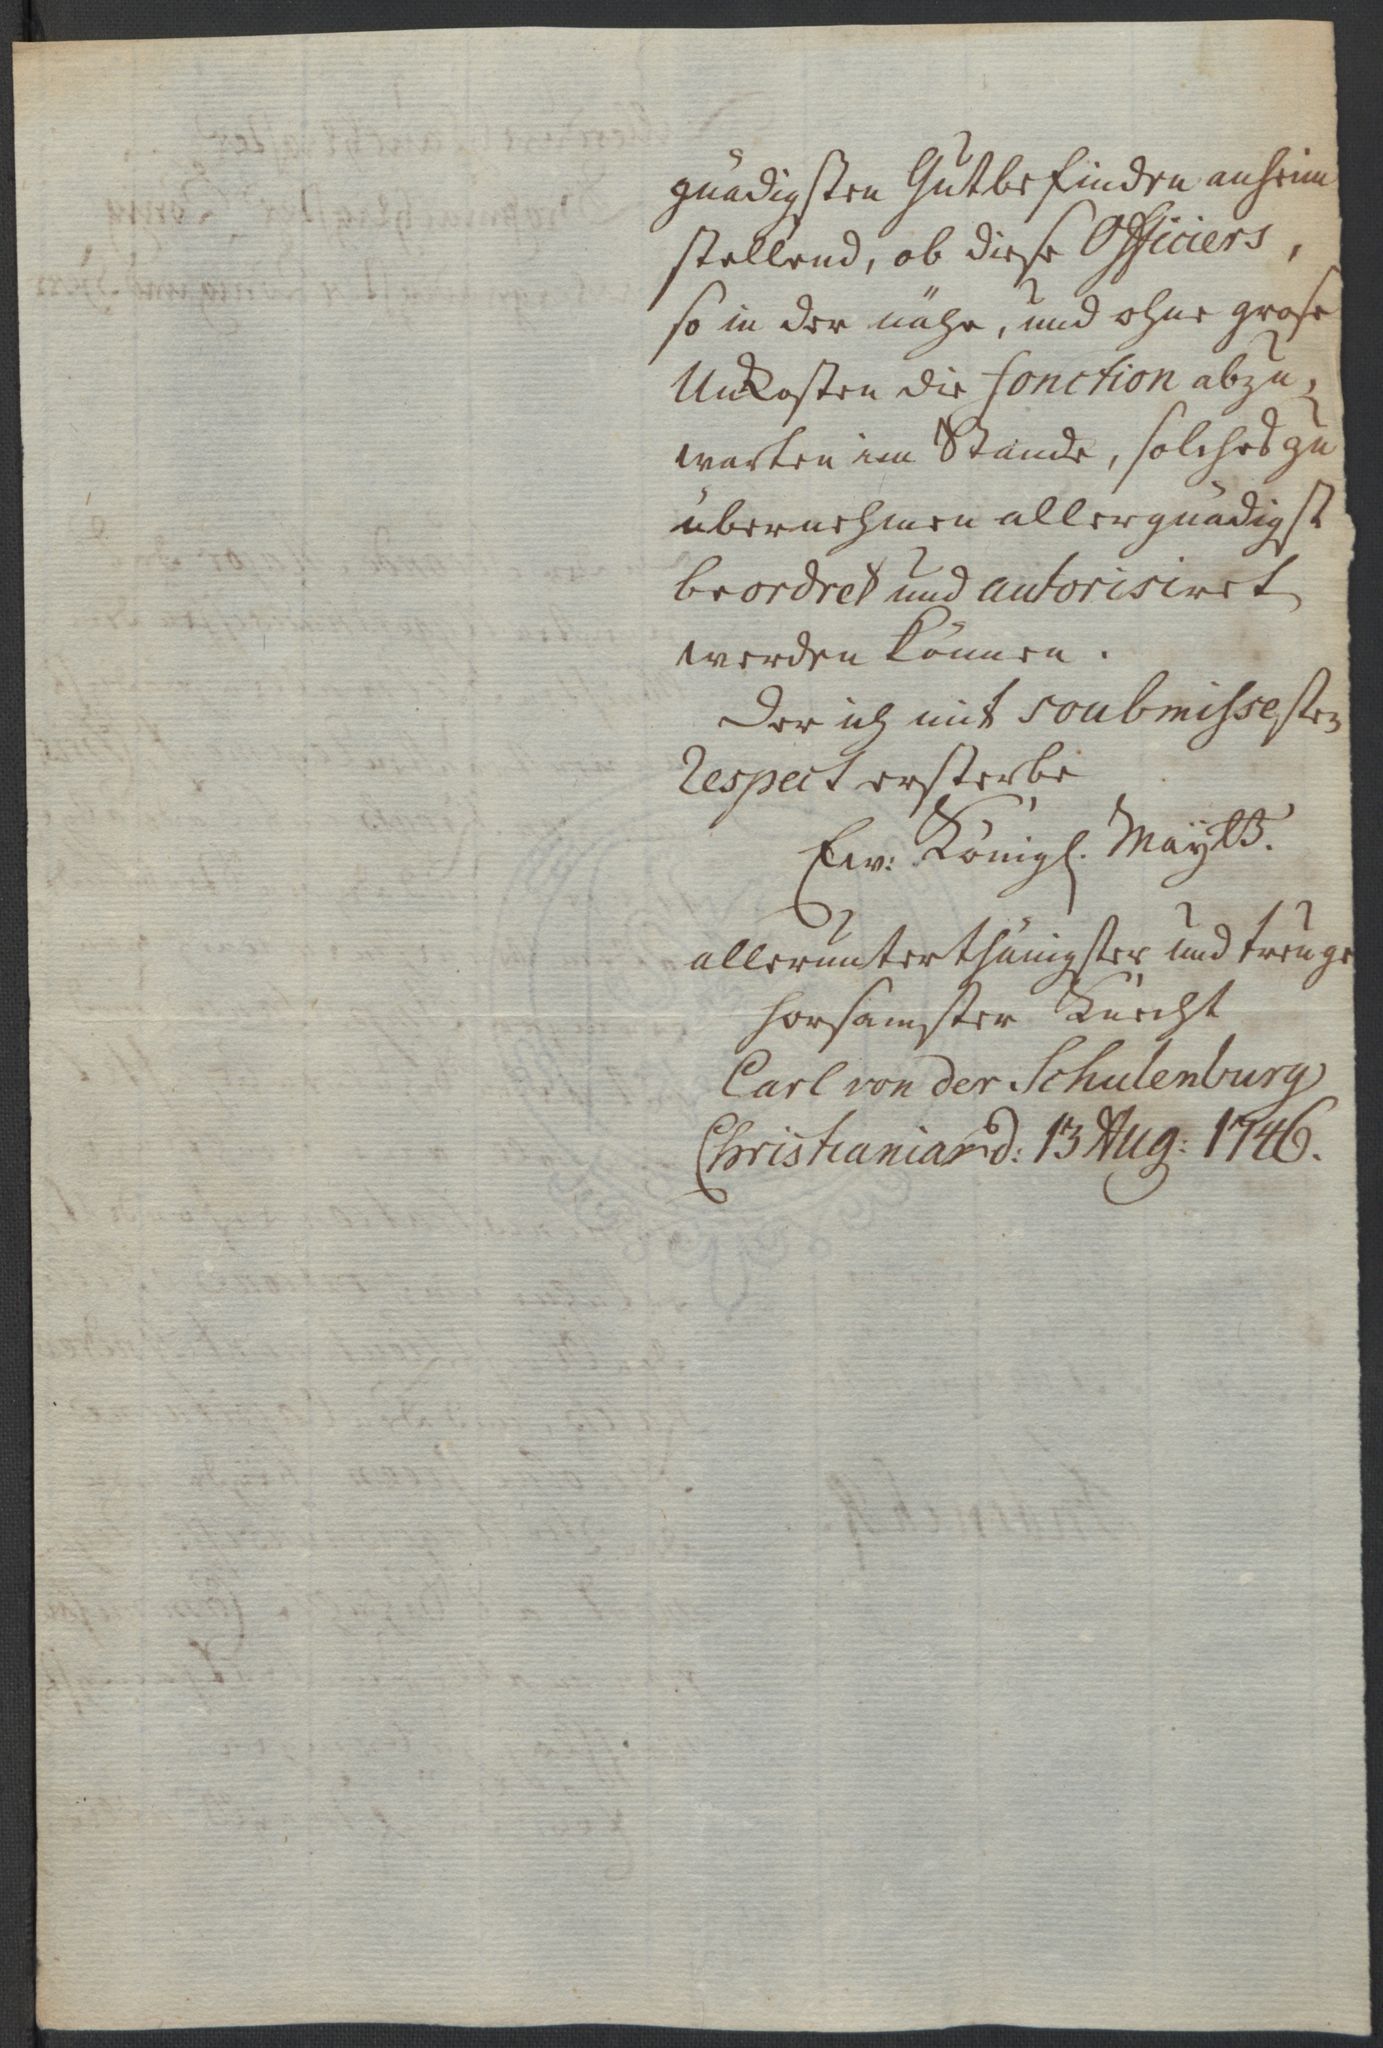 gnädigsten Gutbefinden anheim
stellend, ob diese Officiers,
so in der nähe, und ohne grose
Unkosten die fonction abzu-
warten im Stande, solches zu
übernehmen allergnädigst
beordret und autorisiret
werden können.
Der ich mit soubmissesten
Respect ersterbe
Ew: Königl. Maytt.
allerunterthänigster und treuge
horsamster Knecht
Carl von der Schulenburg
Christiania d: 13 Aug: 1746.